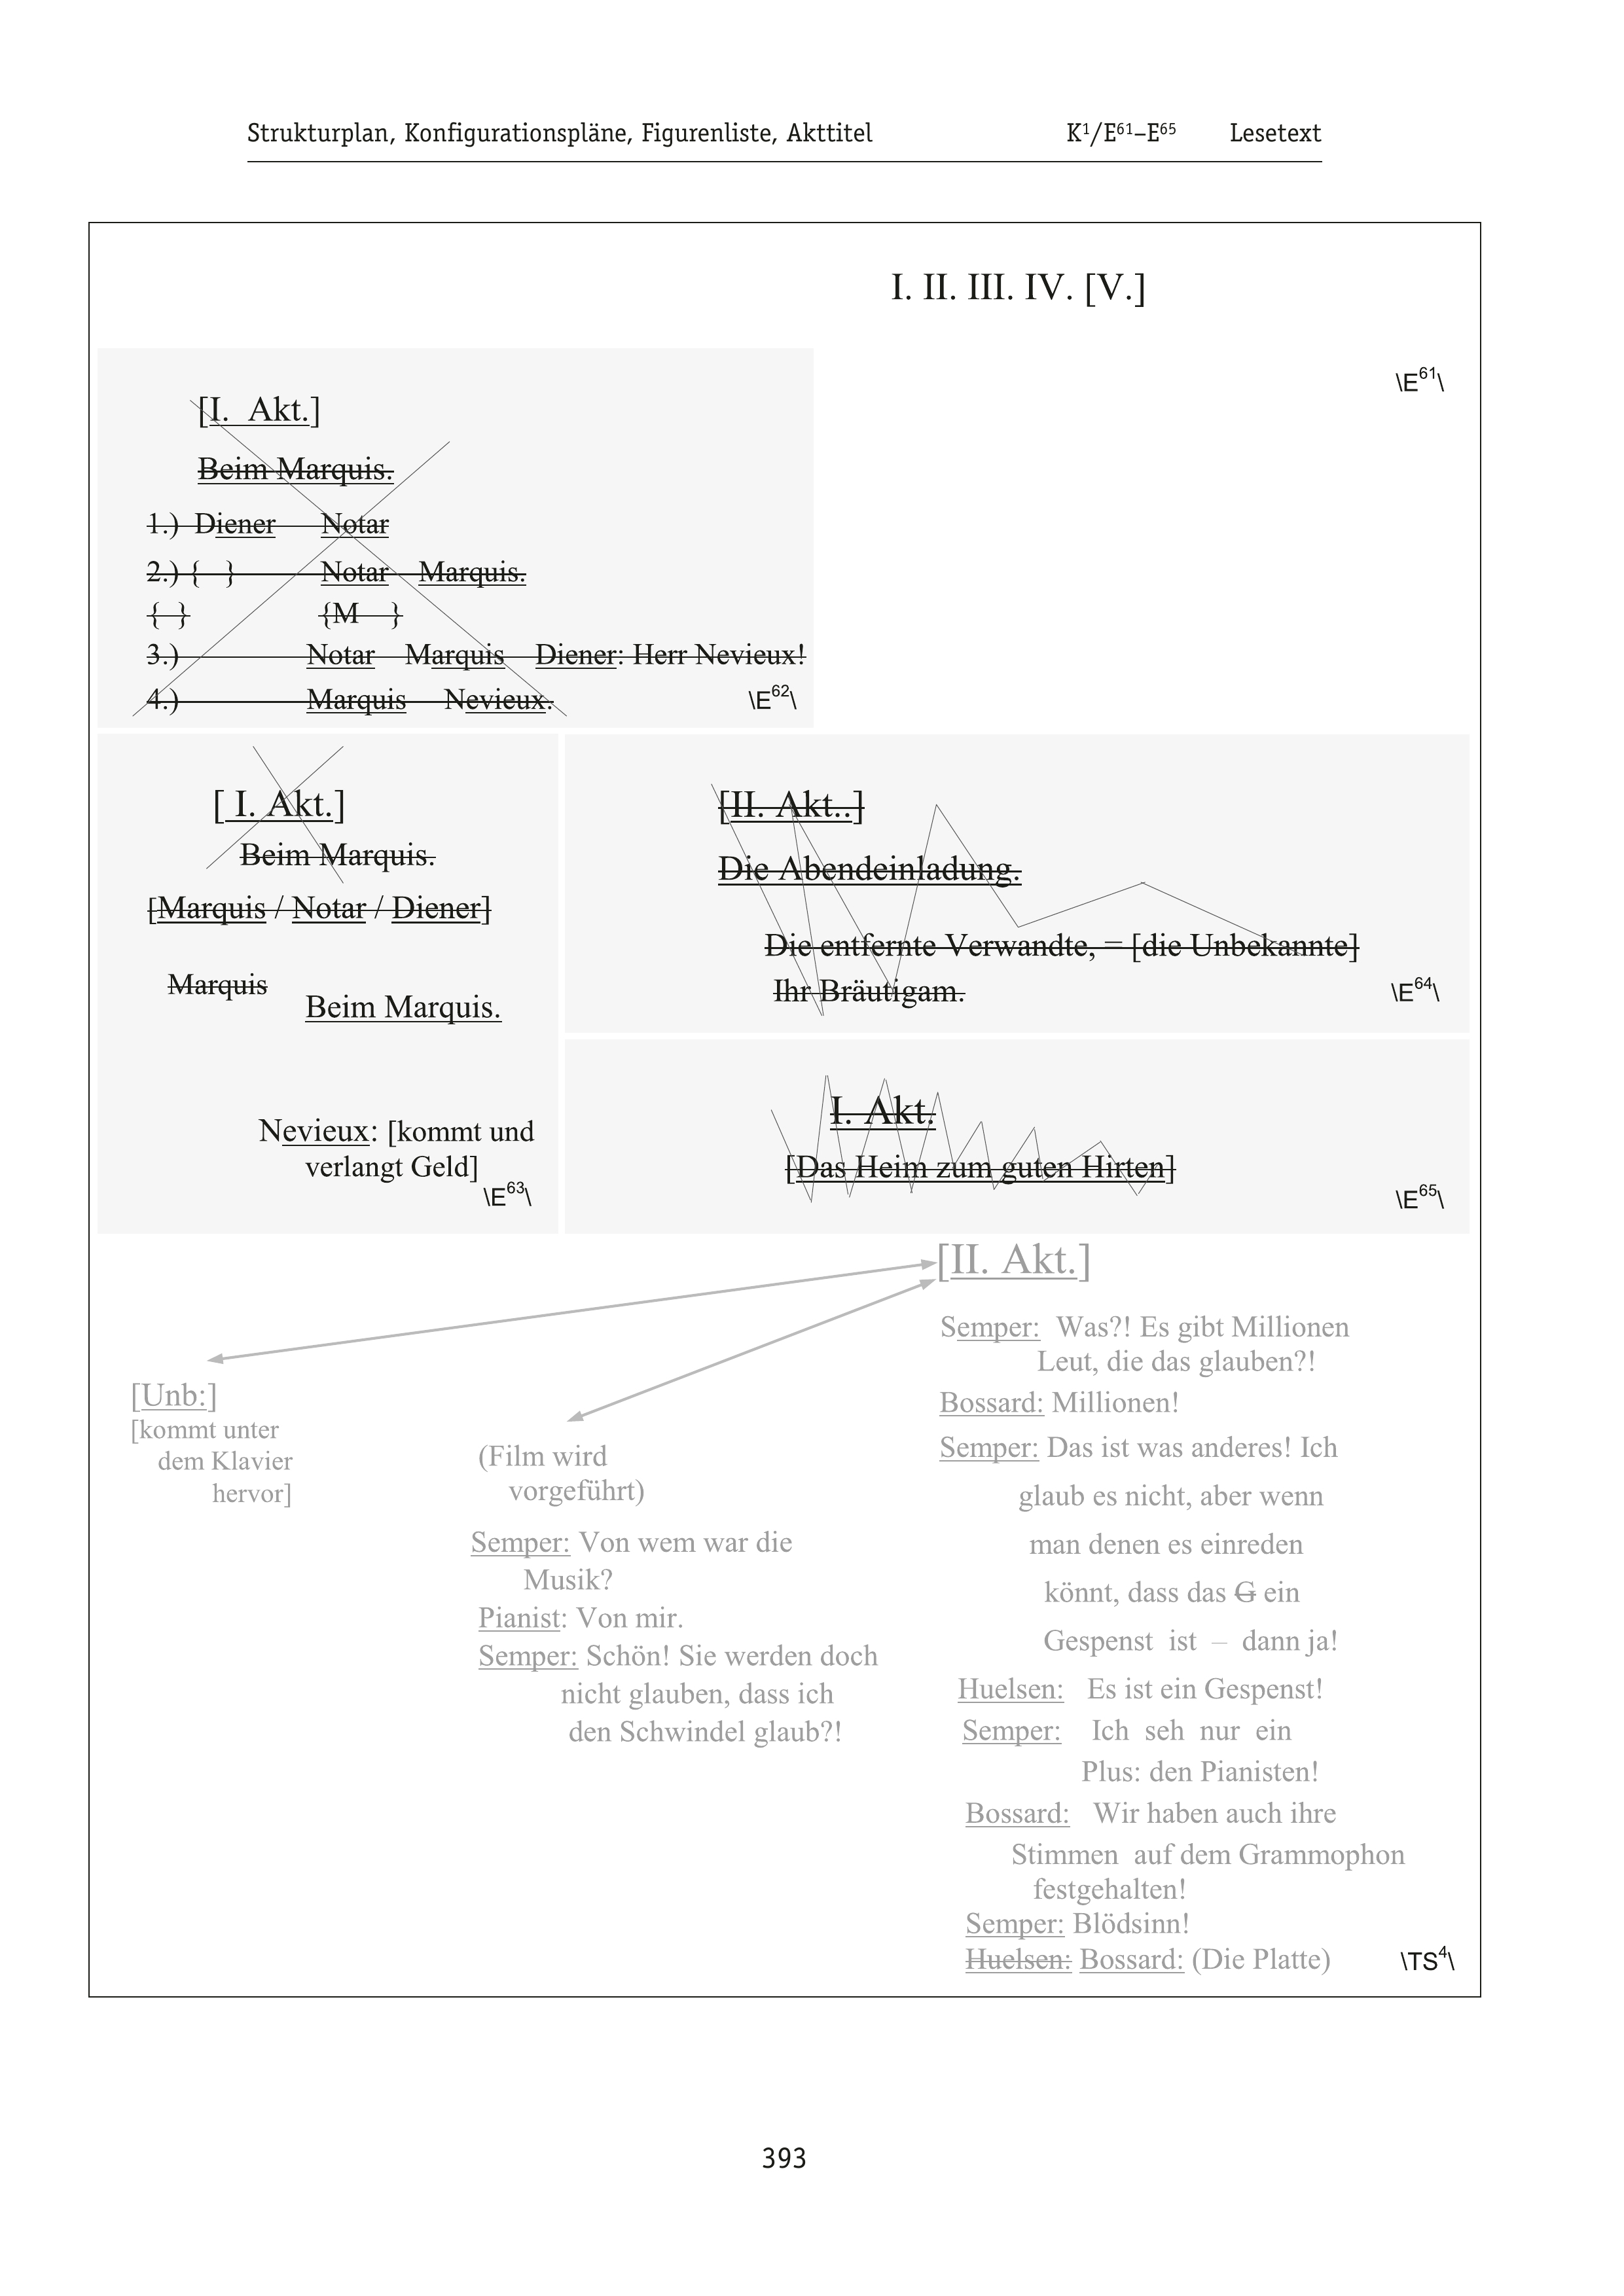 Strukturplan, Konfigurationspläne, Figurenliste, Akttitel K¹/E⁶¹–E⁶⁵ Lesetext
I. II. III. IV. [V.]
\E⁶¹\
[I. Akt.]
Beim Marquis.
1.) Diener Notar
2.) { } Notar Marquis.
{ } {M }
3.) Notar Marquis Diener: Herr Nevieux!
4.) Marquis Nevieux.
\E⁶²\
[ I. Akt.]
Beim Marquis.
[Marquis / Notar / Diener]
Marquis
Beim Marquis.
Nevieux: [kommt und
verlangt Geld]
\E⁶³\
[II. Akt..]
Die Abendeinladung.
Die entfernte Verwandte, – [die Unbekannte]
Ihr Bräutigam.
\E⁶⁴\
I. Akt.
[Das Heim zum guten Hirten]
\E⁶⁵\
[II. Akt.]
[Unb:]
[kommt unter
dem Klavier
hervor]
(Film wird
vorgeführt)
Semper: Von wem war die
Musik?
Pianist: Von mir.
Semper: Schön! Sie werden doch
nicht glauben, dass ich
den Schwindel glaub?!
Semper: Was?! Es gibt Millionen
Leut, die das glauben?!
Bossard: Millionen!
Semper: Das ist was anderes! Ich
glaub es nicht, aber wenn
man denen es einreden
könnt, dass das G ein
Gespenst ist – dann ja!
Huelsen: Es ist ein Gespenst!
Semper: Ich seh nur ein
Plus: den Pianisten!
Bossard: Wir haben auch ihre
Stimmen auf dem Grammophon
festgehalten!
Semper: Blödsinn!
Huelsen: Bossard: (Die Platte)
\TS⁴\
393